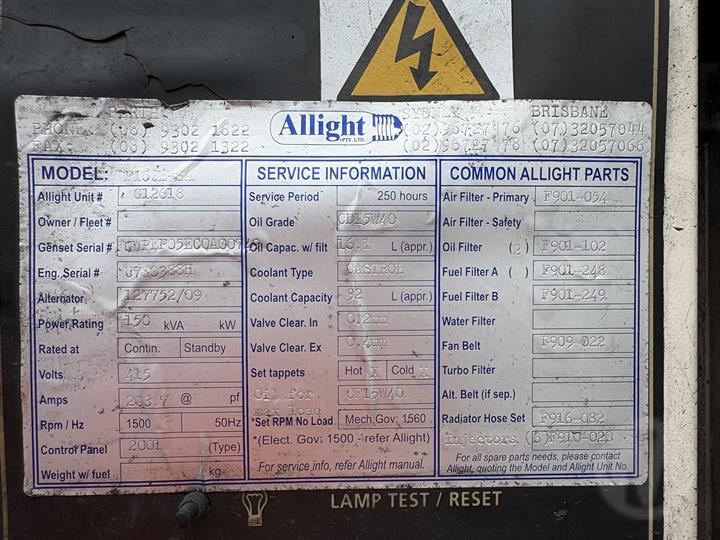 SYDNEY BRISBANE
PHONE: (08) 9302 1622 (02)96727476 (07)32057044
FAX: (08) 9302 1322 (02)96727478 (07)32057066
Allight PTY. LTD.
MODEL:
Allight Unit # G12618
Owner / Fleet #
Genset Serial #
Eng. Serial # U730388H
Alternator 127752/09
Power Rating 150 kVA kW
Rated at Contin. Standby
Volts 415
Amps 203.7 @ pf
Rpm / Hz 1500 50Hz
Control Panel 2001 (Type)
Weight w/fuel kg
SERVICE INFORMATION
Service Period 250 hours
Oil Grade CD15W40
Oil Capac. w/ filt 16.1 L (appr.)
Coolant Type CASTROL
Coolant Capacity 32 L (appr.)
Valve Clear. In 0.2mm
Valve Clear. Ex 0.4mm
Set tappets Hot X Cold X
Oil for CF15W40
max load
*Set RPM No Load Mech.Gov: 1560
*(Elect. Gov: 1500 - refer Allight)
For service info, refer Allight manual.
COMMON ALLIGHT PARTS
Air Filter - Primary F901-054
Air Filter - Safety
Oil Filter (2) F901-102
Fuel Filter A ( ) F901-248
Fuel Filter B F901-249
Water Filter
Fan Belt F909-022
Turbo Filter
Alt. Belt (if sep.)
Radiator Hose Set F916-082
Injectors (6) F910-020
For all spare parts needs, please contact
Allight, quoting the Model and Allight Unit No.
LAMP TEST / RESET